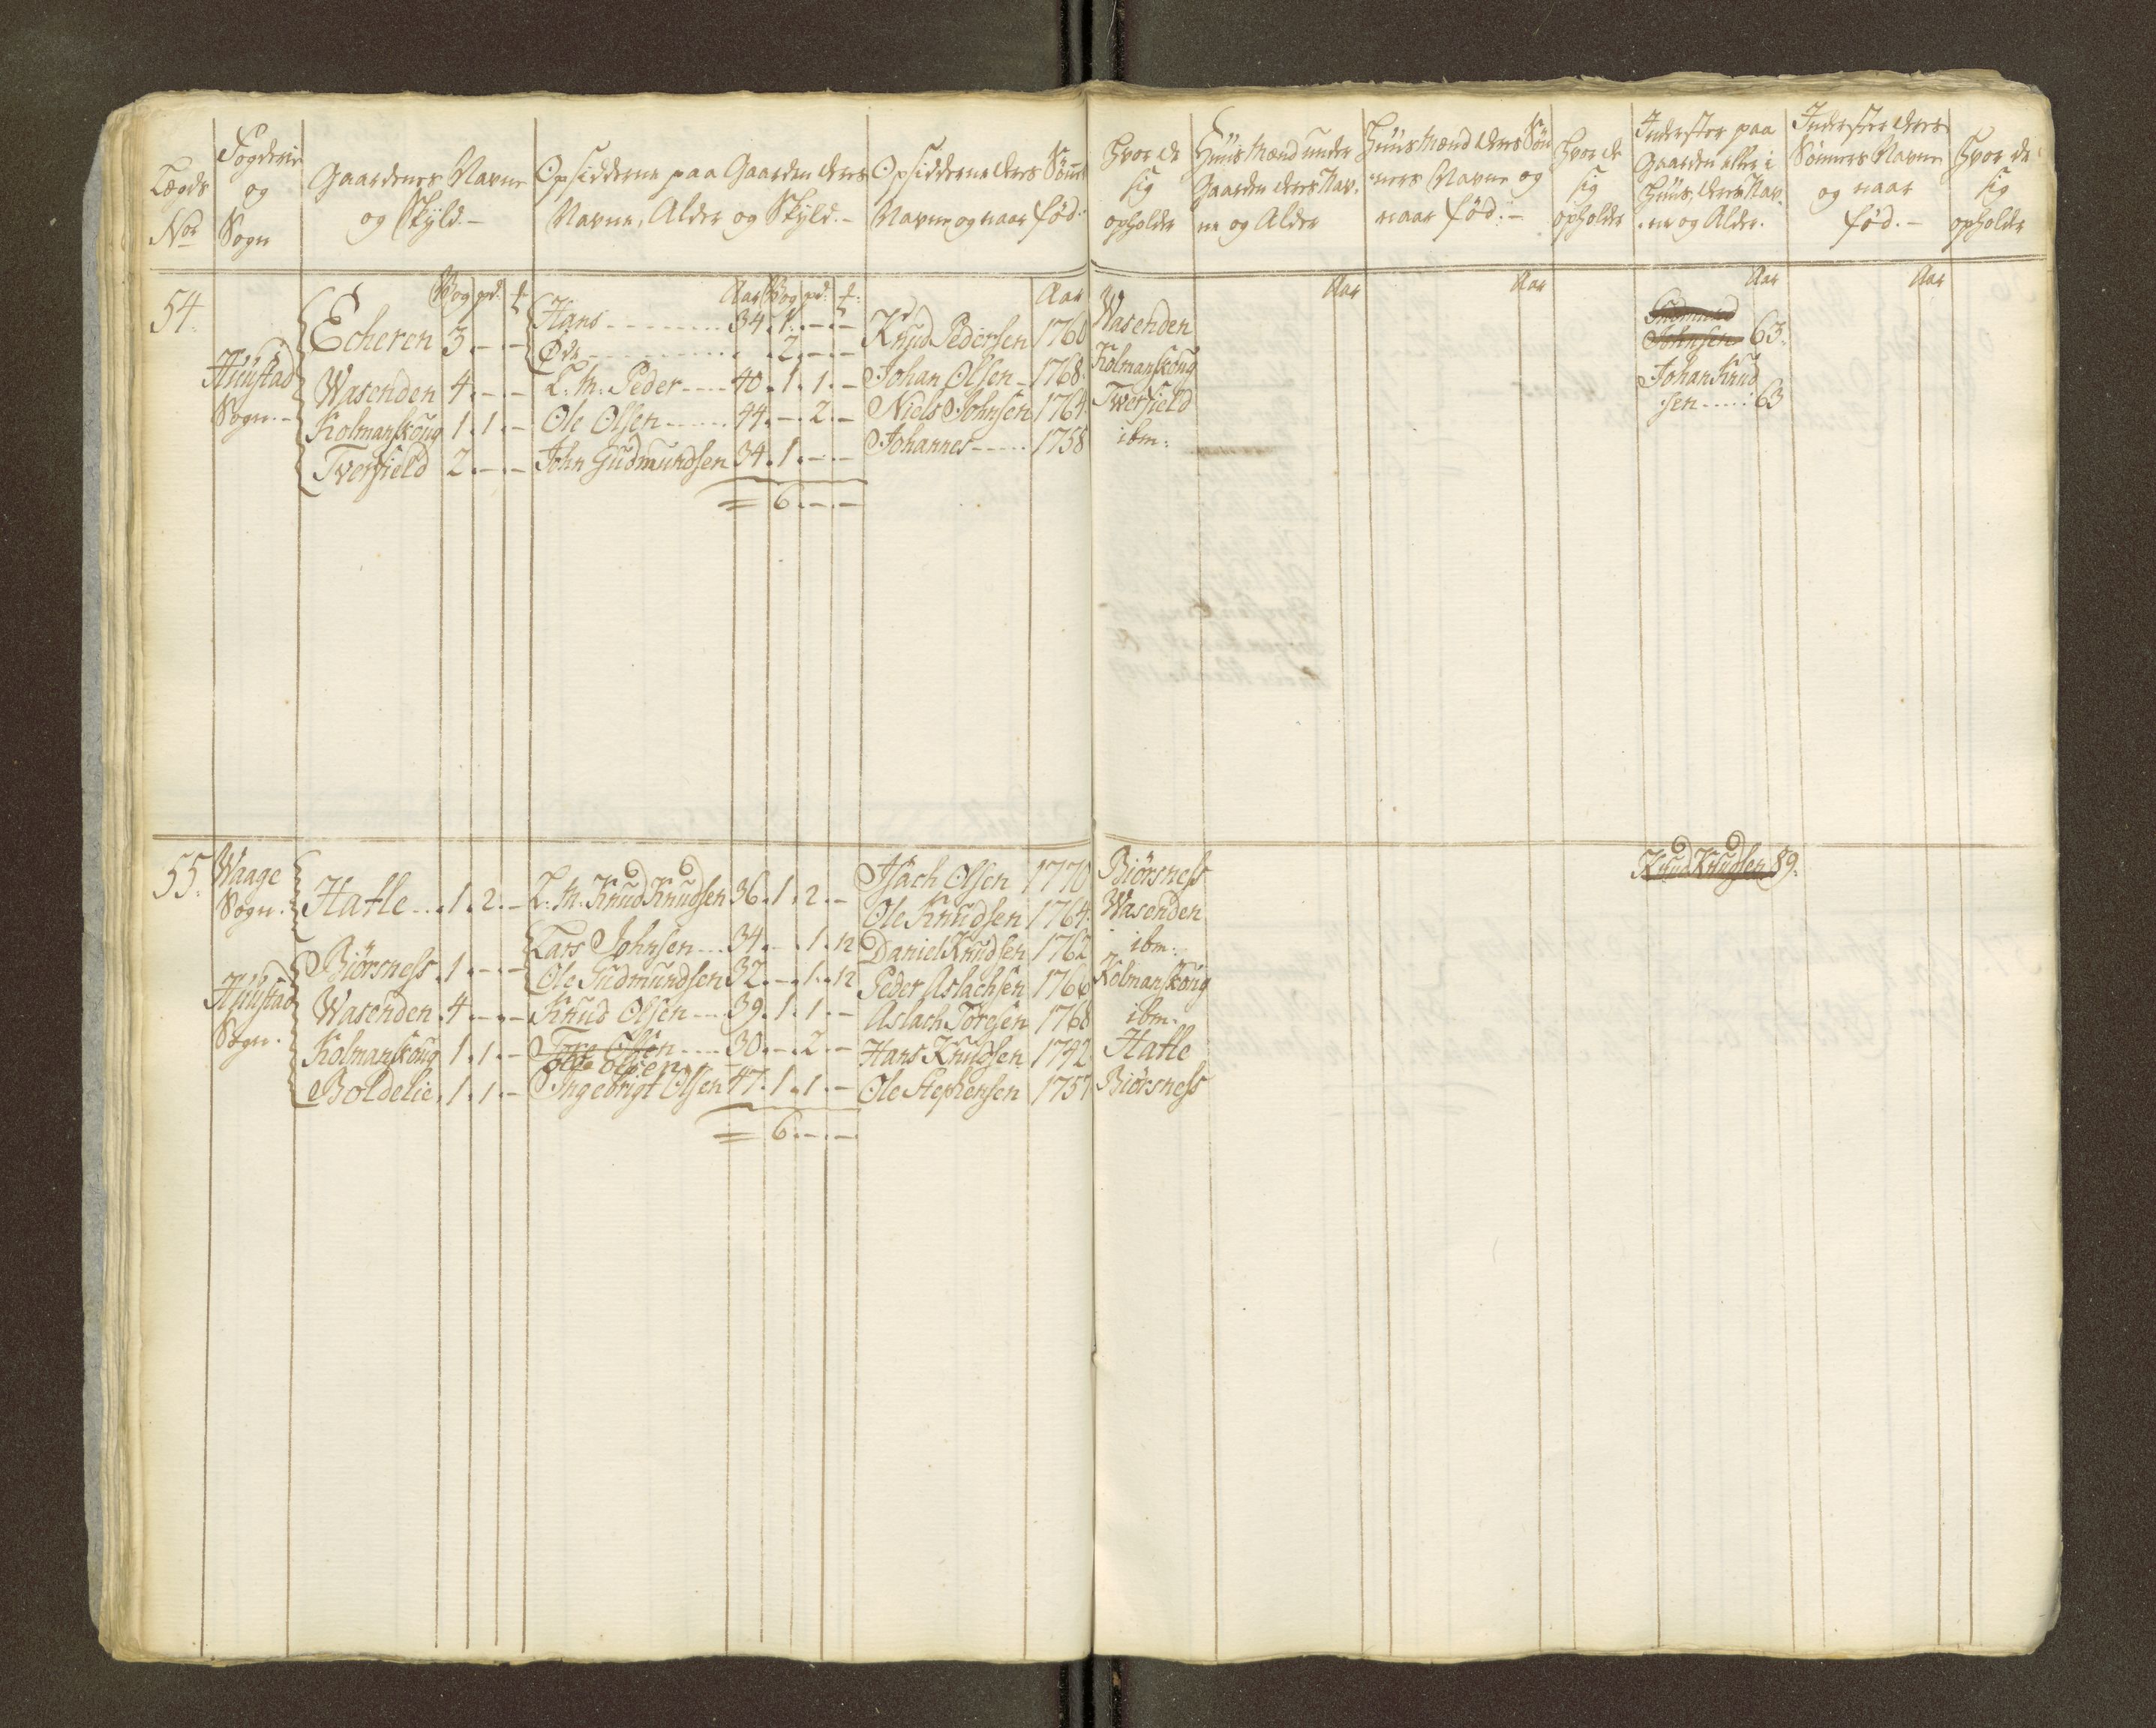 Lægds No
Fogderie og Sogn
Gaardenes Navne og Skyld.-
Opsidderne paa Gaarden deres Navne, Alder og Skyld.-
Opsidderne deres Sönners Navne og naar föd.
Hvor de sig opholder
Huus Mænd under Gaarden deres Navne og Alder
Huus Mænd deres Sönners Navne og naar föd.-
Hvor de sig opholde
Inderster paa Gaarden eller i Huus, deres Navne og Alder.
Inderster deres Sönners Navne og naar föd.-
Hvor de sig opholde
Vog pd. Aar Vog pd. Aar Aar Aar Aar Aar
54.
Hüüstad Sogn.-
Echeren 3.-.- Hans 34.1.-.- Knud Pedersen 1760 Wasenden
Øde 2.-.- Johnsen 63.
Wasenden 4.-.- L: M: Peder 40.1.1.- Johan Olsen 1768 Kolmanskoug Johan Knud
Kolmanskoug 1.1.- Ole Olsen 44.-.2.- Niels Johnsen 1764 Tverfield sen 63
Tverfield 2.-.- John Gudmundsen 34.1.-.- Johannes 1758 ibm:
= 6.-.-
55.
Waage Sogn.
Hatle 1.2.- L: M: Knud Knudsen 36.1.2.- Isach Olsen 1770 Biörsness Knud Knudsen 89.
Ole Knudsen 1764. Wasenden
Biörsness 1.-.- Lars Johnsen 34.-.1.12 Daniel Knudsen 1762 ibm:
Hüüstad Sogn.
Ole Gudmundsen 32.-.1.12 Peder Aslachsen 1766 Kolmanskoug
Wasenden 4.-.- Knud Olsen 39.1.1.- Aslach Toresen 1768 ibm.
Kolmanskoug 1.1.- Tore Olsen 30.-.2.- Hans Knudsen 1742 Hatle
ole olsen
Boldelie 1.1.- Ingebrigt Olsen 47.1.1.- Ole Stephensen 1757 Biörsness
= 6.-.-